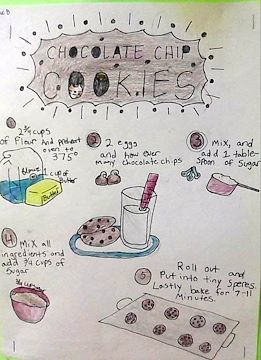 CHOCOLATE CHIP
COOKIES
① 2 ¾ cups
of flour And preheat
oven to
375°
flour
1 cup of
butter
Butter
② 2 eggs
and how ever
many chocolate chips
③ mix, and
add 1 table-
spoon of Sugar
④ Mix all
ingredients and
add ¾ cups of
Sugar
¾ cup sugar
⑤ Roll out and
Put into tiny speres.
Lastly bake for 7-11
Minutes.